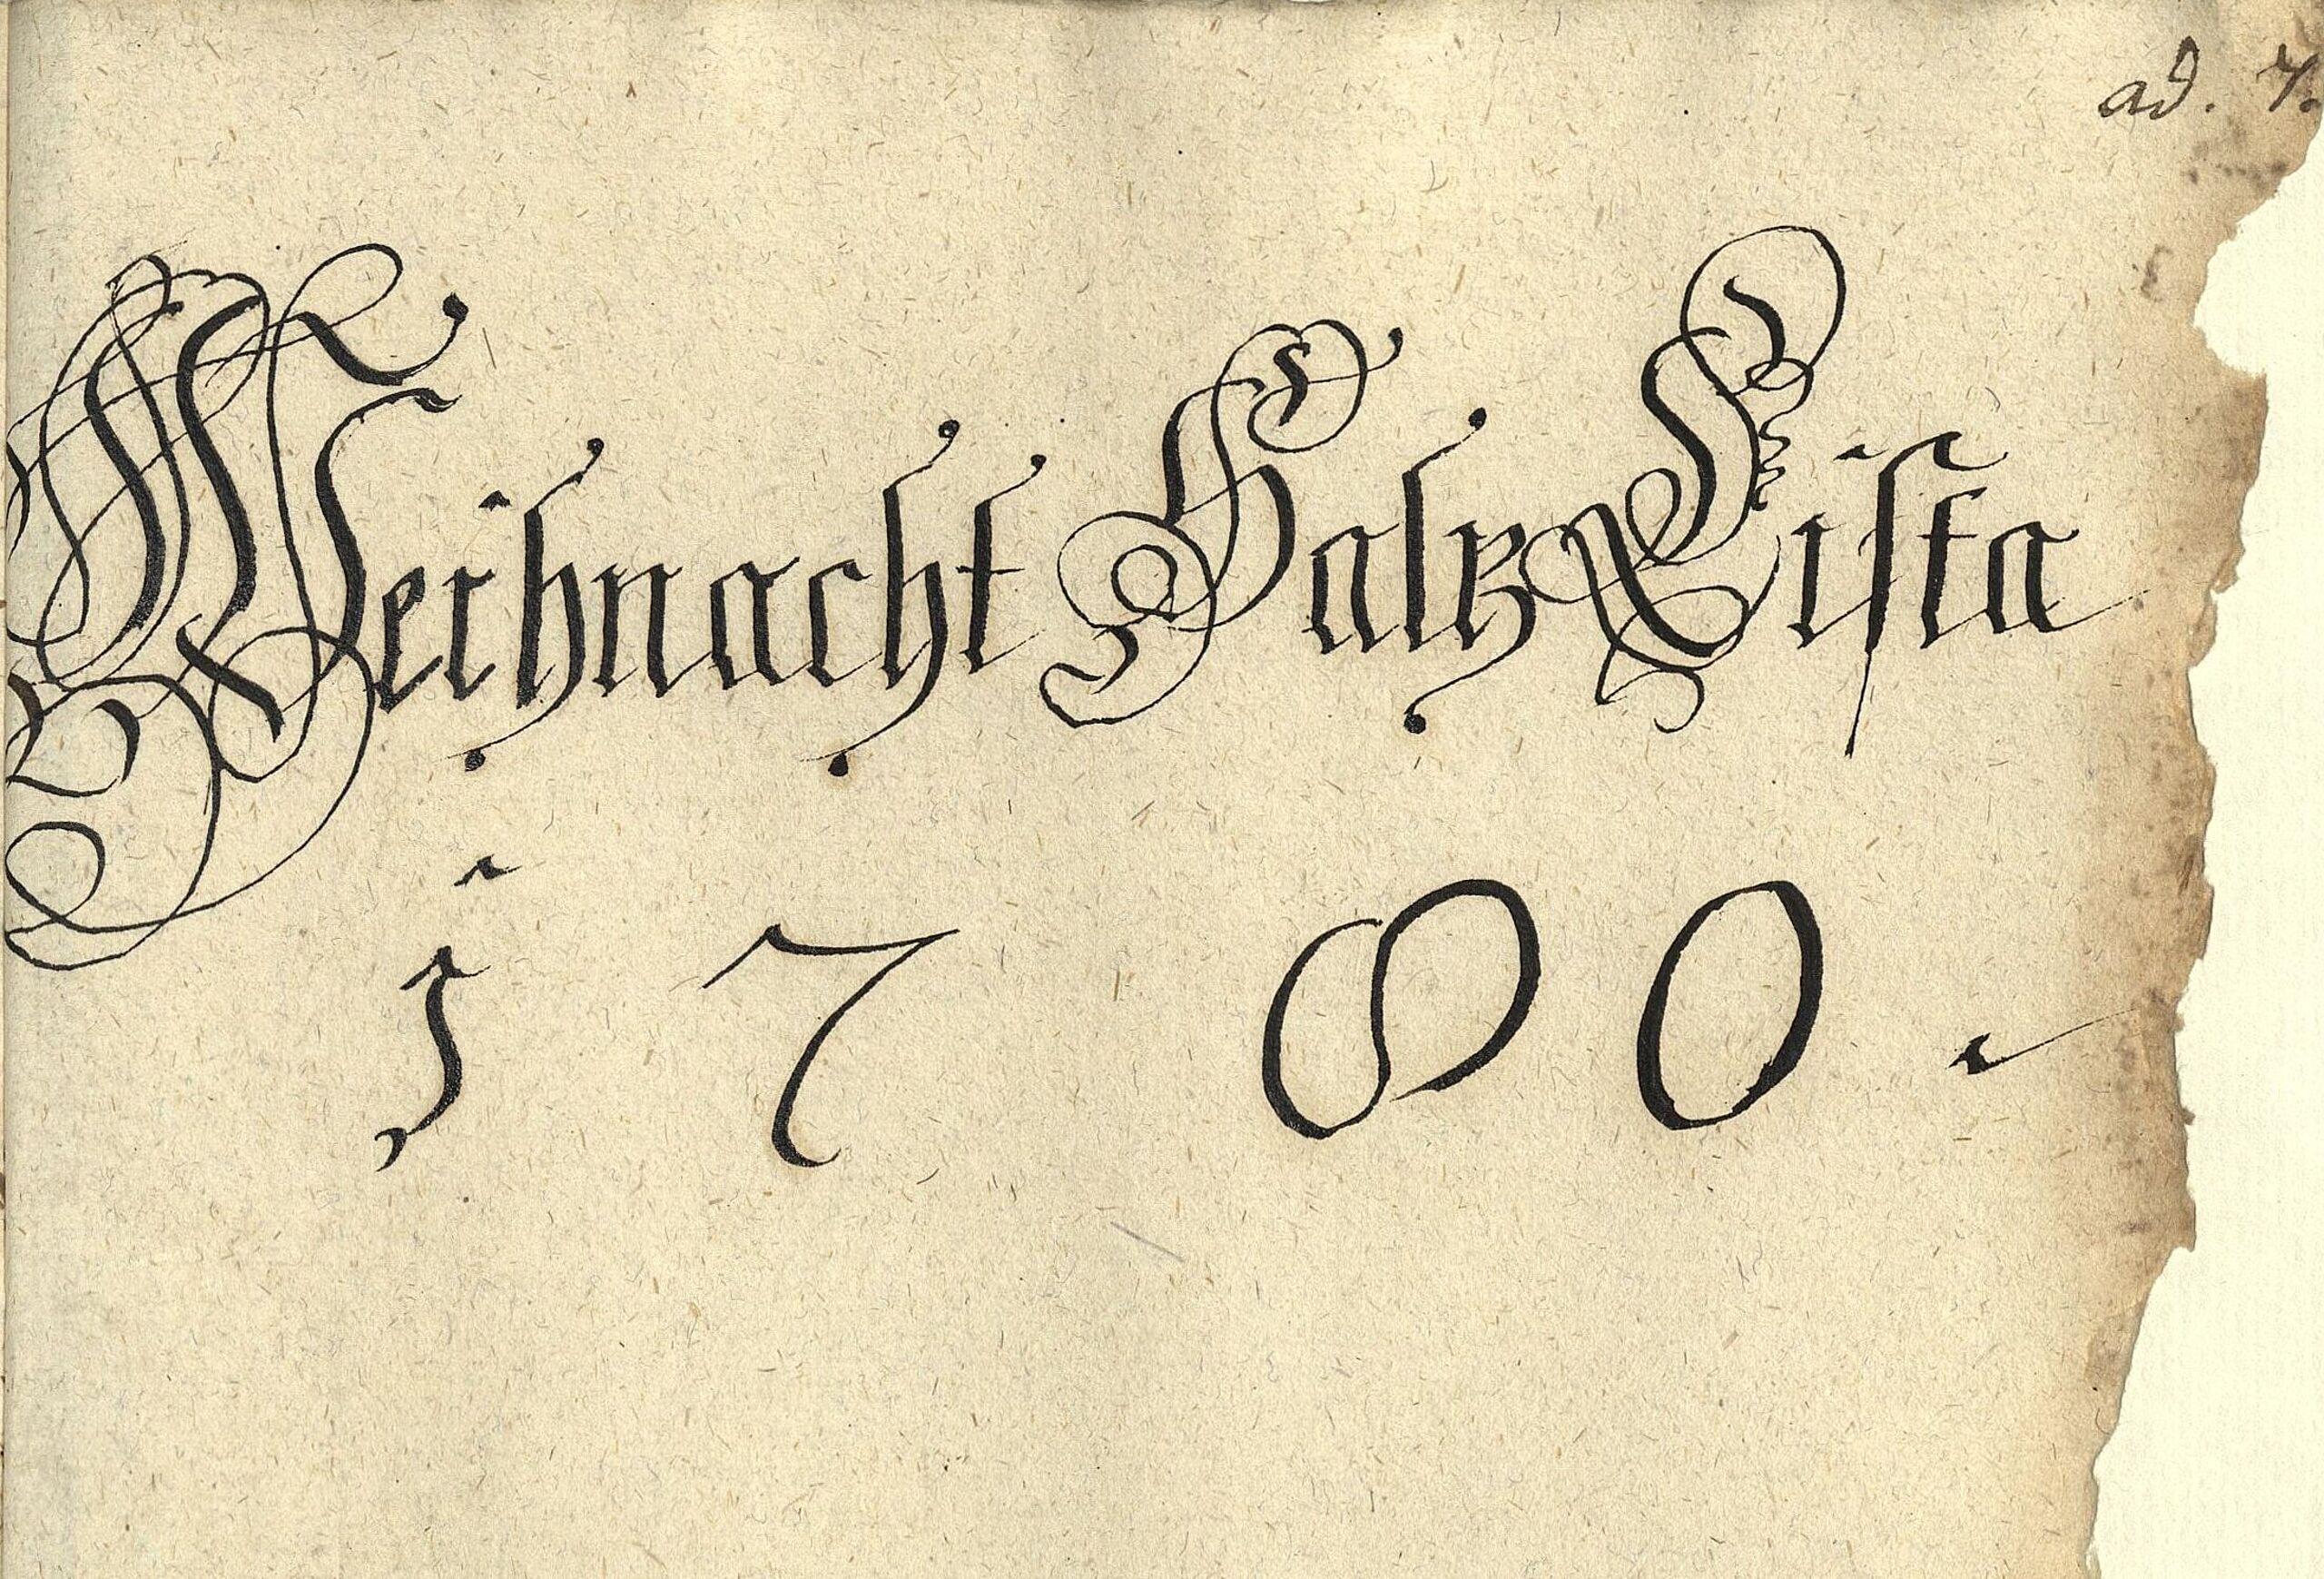 ad. 7.
Weihnacht Salz Lista
1780.